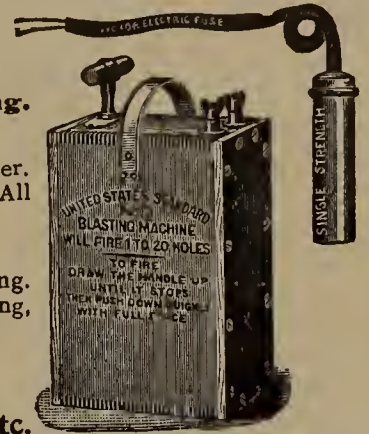 VICTOR ELECTRIC FUSE
SINGLE STRENGTH
ng.
er.
All
UNITED STATES STANDARD
BLASTING MACHINE
WILL FIRE 1 TO 20 HOLES
TO FIRE
DRAW THE HANDLE UP
UNTIL IT STOPS
THEN PUSH DOWN QUICKLY
WITH FULL FORCE
ng.
ng,
tc.